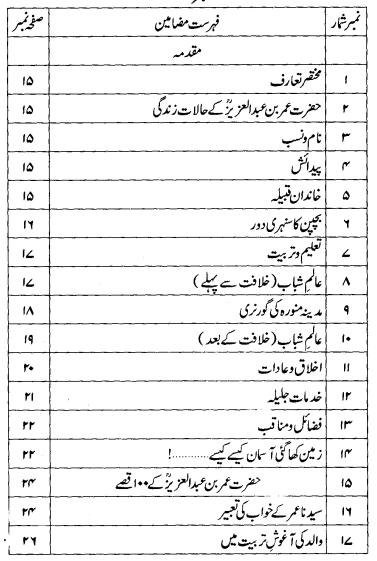 نمبر شمار فہرست مضامین صفحہ نمبر
مقدمہ
۱ مختصر تعارف ۱۵
۲ حضرت عمر بن عبدالعزیزؒ کے حالات زندگی ۱۵
۳ نام و نسب ۱۵
۴ پیدائش ۱۵
۵ خاندان قبیلہ ۱۵
۶ بچپن کا سنہری دور ۱۶
۷ تعلیم و تربیت ۱۷
۸ عالمِ شباب (خلافت سے پہلے) ۱۷
۹ مدینہ منورہ کی گورنری ۱۸
۱۰ عالمِ شباب (خلافت کے بعد) ۱۹
۱۱ اخلاق و عادات ۲۰
۱۲ خدمات جلیلہ ۲۱
۱۳ فضائل و مناقب ۲۲
۱۴ زمین کھا گئی آسمان کیسے کیسے ............! ۲۲
۱۵ حضرت عمر بن عبدالعزیزؒ کے ۱۰۰ قصے ۲۴
۱۶ سیدنا عمر کے خواب کی تعبیر ۲۴
۱۷ والد کی آغوشِ تربیت میں ۲۶